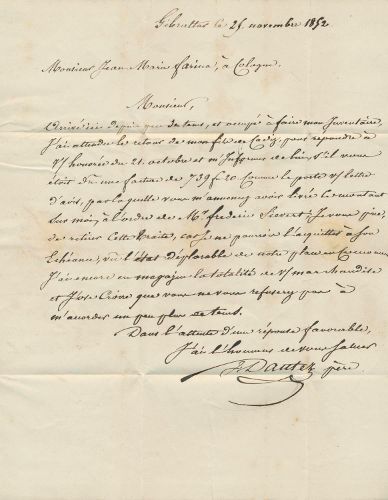 Gibraltar le 25 novembre 1852
Monsieur Jean Maria farina, à Cologne.
Monsieur,
Arrivé ici depuis peu de tems, et occupé à faire mon Inventaire,
J'ai attendu le retour de mon fils de Cadix pour répondre à
v/ honorée du 21 octobre et m'Informer de lui, s'il vous
était dû une facture de 739 f 20 Comme le porte v/ lettre
d'avis, par laquelle vous m'annoncez avoir livré le montant
sur moi, à l'ordre de Mr. frederic Je vous prie,
de retirer Cette traite, car je ne pourrai l'acquitter à son
Echéance, vu l'état déplorable de notre place en Commerce
J'ai encore en magasin la totalité de v/ marchandise
et J'ose Croire que vous ne vous refuserez pas à
m'accorder un peu plus de tems.
Dans l'attente d'une réponse favorable,
J'ai l'honneur de vous saluer
Dautez père